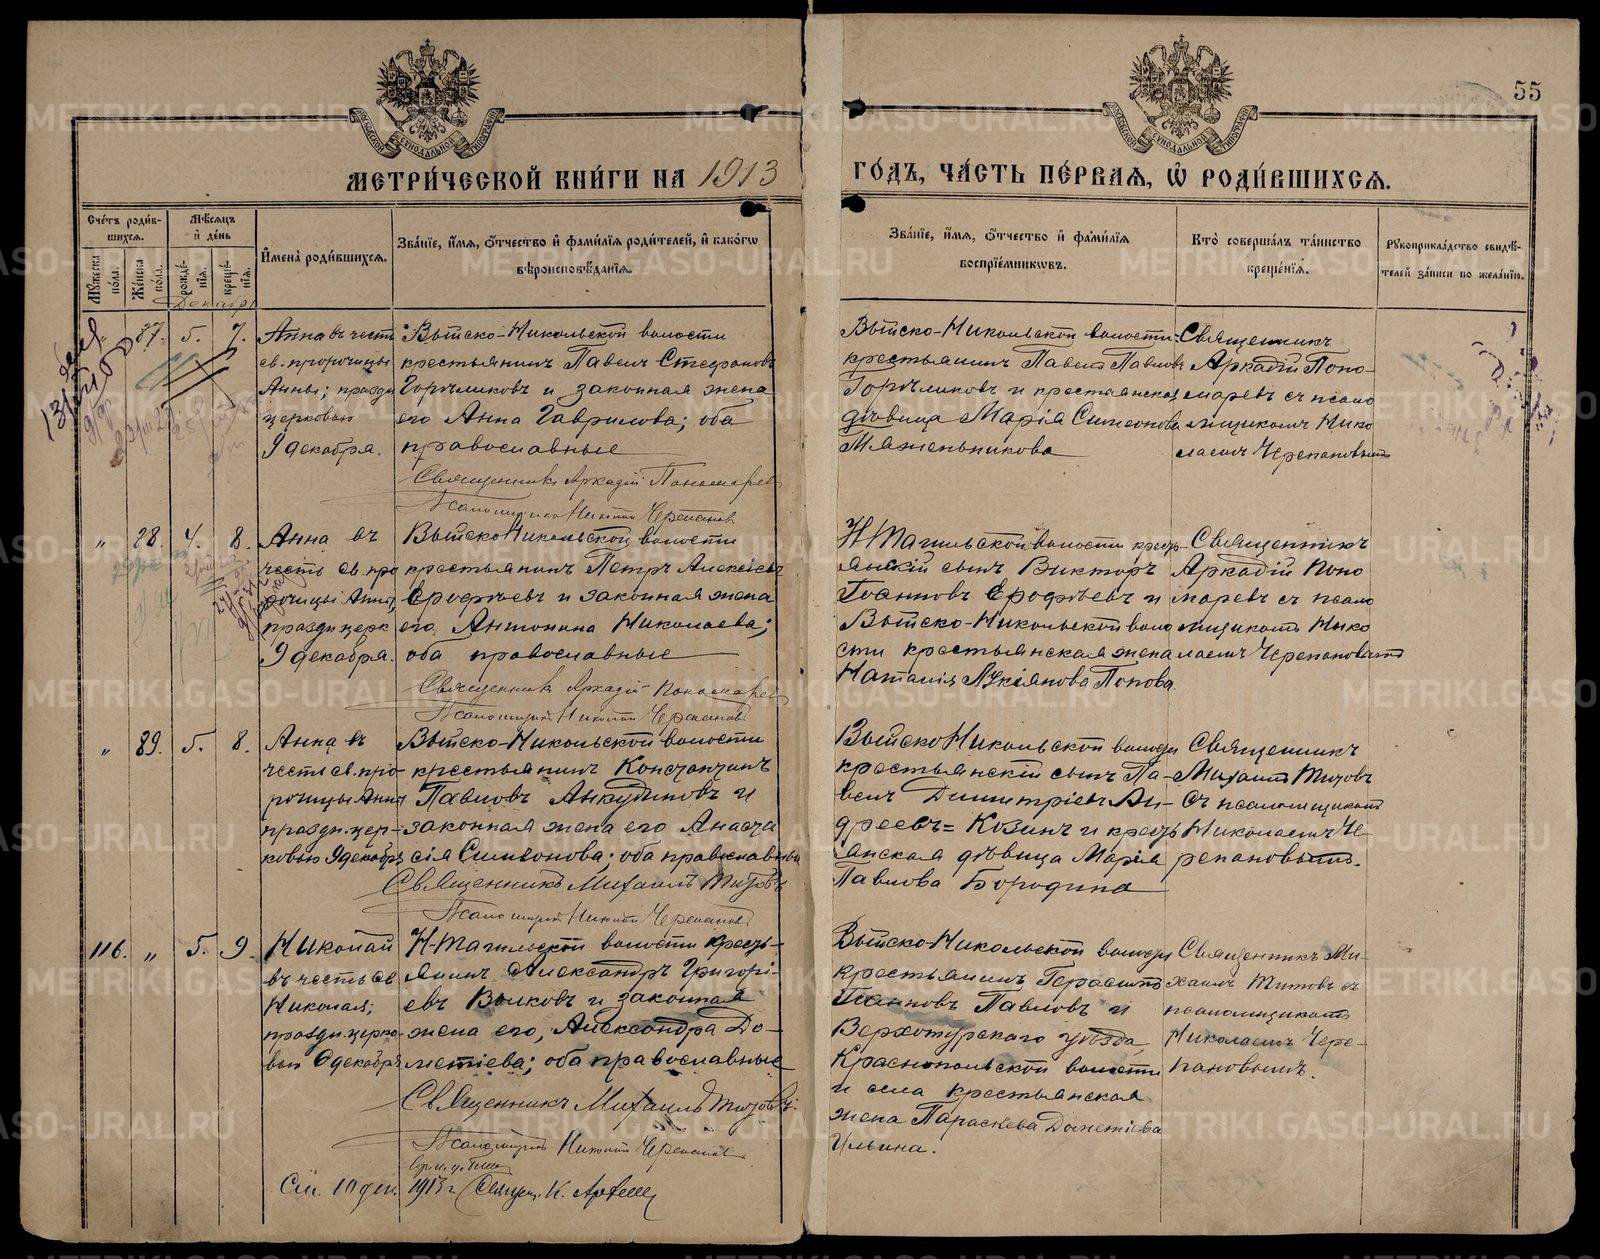 55
МЕТРИ́ЧЕСКОЙ КНИ́ГИ НА 1913 ГО́ДЪ, ЧА́СТЬ ПЕ́РВАѦ, Ѡ РОДИ́ВШИХСѦ.
Сче́тъ роди́в-
шихсѧ.
Мѣ́сѧцъ
и҆ де́нь
Мꙋ́жеска по́ла.
Же́нска по́ла.
рожде́-
нїѧ.
креще́-
нїѧ.
И҆мена̀ роди́вшихсѧ.
Зва́нїе, и҆́мѧ, ѻ҆́тчество и҆ фами́лїѧ роди́телей, и҆ како́гѡ
вѣроисповѣ́данїѧ.
Зва́нїе, и҆́мѧ, ѻ҆́тчество и҆ фами́лїѧ
воспрїе́мникѡвъ.
Кто̀ соверша́лъ та́инство
креще́нїѧ.
Рꙋкоприкла́дство свидѣ́-
телей за́писи по жела́нїю.
Декабрь
„ 87. 5. 7.
Анна въ честь
св. пророчицы
Анны; праздн
церковью
9 декабря.
Выйско-Никольской волости
крестьянинъ Павелъ Стефановъ
Горчиловъ и законная жена
его Анна Гаврилова; оба
православные
Священникъ Аркадій Пономаревъ
Псаломщикъ Николай Черепановъ
Выйско-Никольской волости
крестьянинъ Павелъ Павловъ
и крестьянская
дѣвица Марія Симеонова
Мяженьникова
Священникъ
Аркадій Поно-
маревъ съ псало
мщикомъ Нико
лаемъ Черепановымъ
„ 88. 4. 8.
Анна въ
честь св. про
рочицы Анны,
праздн. церк
9 декабря.
Выйско Никольской волости
крестьянинъ Петръ Алексѣевъ
Ерофѣевъ и законная жена
его Антонина Николаева;
оба православные
Священникъ Аркадій Пономаревъ
Псаломщикъ Николай Черепановъ
Н Тагильской волости кресть-
янскій сынъ Викторъ
Іоанновъ Ерофѣевъ и
Выйско-Никольской воло
сти крестьянская жена
Наталія Лукіянова Попова.
Священникъ
Аркадій Поно
маревъ съ псало
мщикомъ Нико
лаемъ Черепановымъ
„ 89. 5. 8.
Анна въ
честь св. про-
рочицы Анны
праздн. цер-
ковью 9 декабря
Выйско-Никольской волости
крестьянинъ Константинъ
Павловъ Анкудиновъ и
законная жена его Анаста
сія Симеонова; оба православные
Священникъ Михаилъ Титовъ
Псаломщикъ Николай Черепановъ
Выйско Никольской волости
крестьянскій сынъ Па-
велъ Димитріевъ Ан-
дреевъ= Козинъ и кресть
янская дѣвица Марія
Павлова Бородина
Священникъ
Михаилъ Титовъ
съ псаломщикомъ
Николаемъ Че-
репановымъ.
116. „ 5. 9.
Николай
въ честь св
Николая;
праздн. церко-
вью 6 декабря
Н-Тагильской волости кресть-
янинъ Александръ Григорі-
евъ Волковъ и законная
жена его, Александра До-
метіева; оба православные
Священникъ Михаилъ Титовъ.
Псаломщикъ Николай Черепановъ
Выйско-Никольской волости
крестьянинъ Герасимъ
Іоанновъ Павловъ и
Верхотурскаго уѣзда,
Краснопольской волости
и села крестьянская
жена Параскева Дометіева
Ильина.
Священникъ Ми-
хаилъ Титовъ съ
псаломщикомъ
Николаемъ Чере-
пановымъ.
10 дек. 1913 г. Священ. К.
METRIKI.GASO-URAL.RU